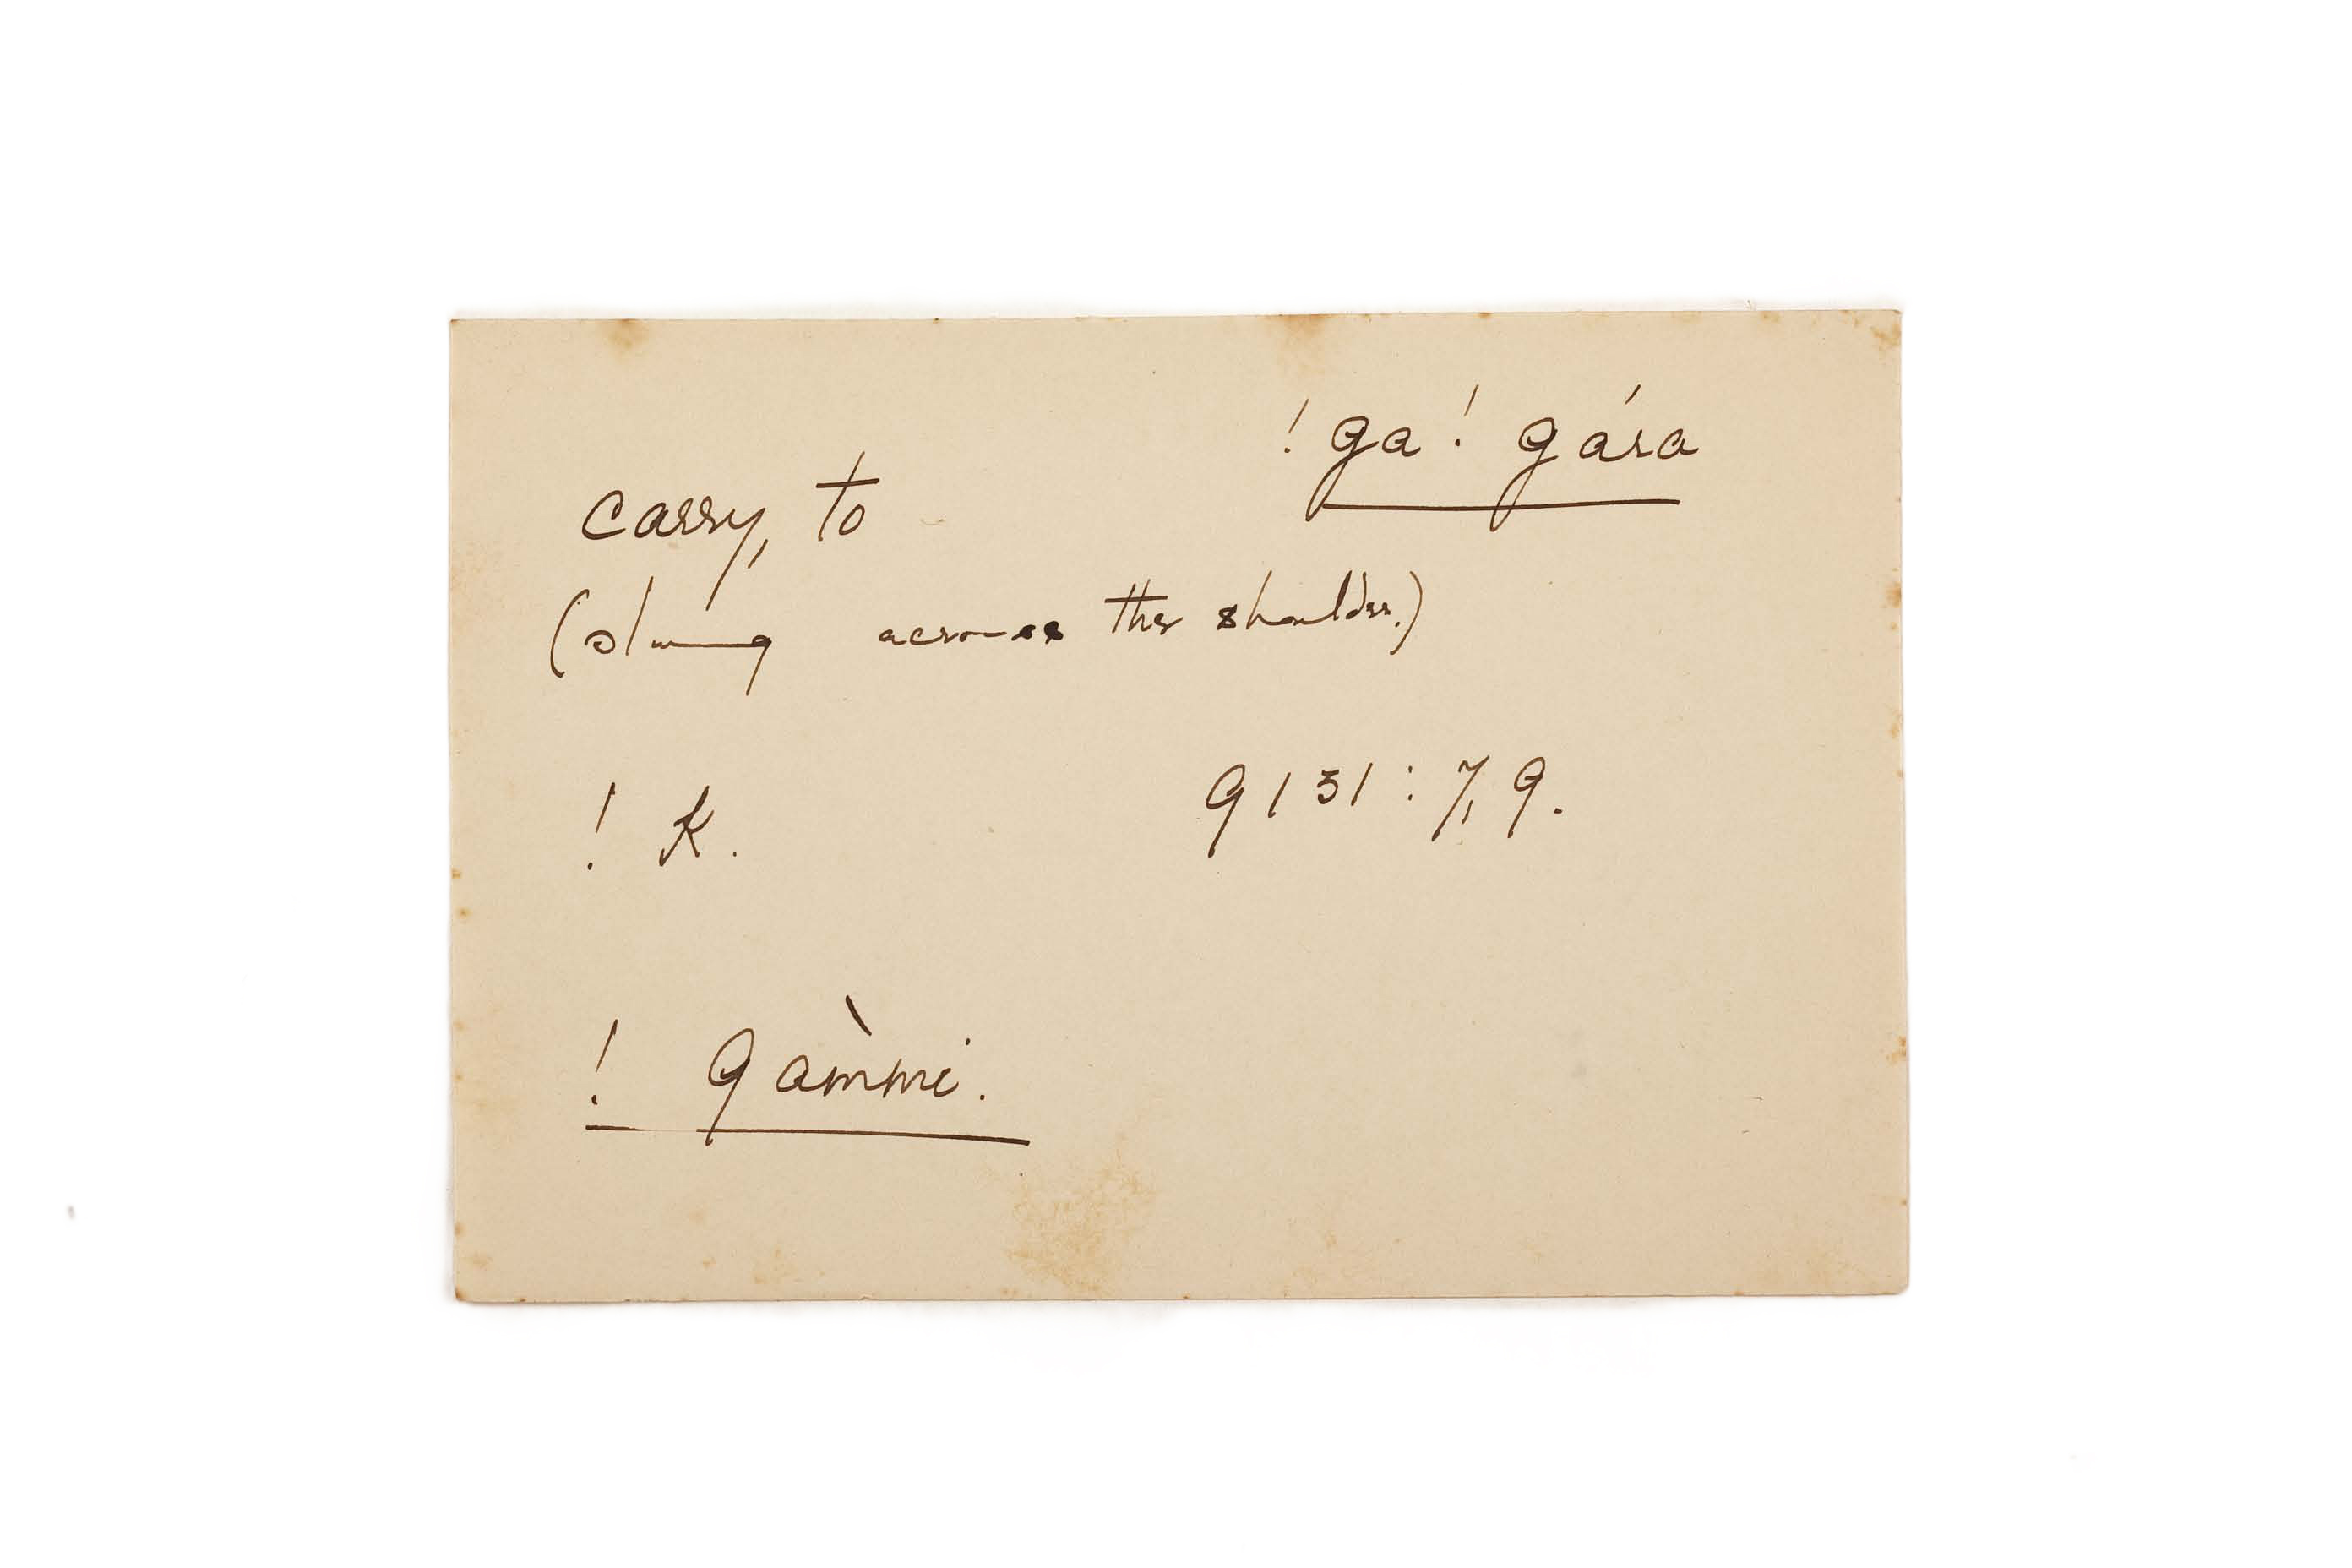 !ga!gára
carry, to
(slung across the shoulder.)
! K. 9131:7,9.
! gàmmi.